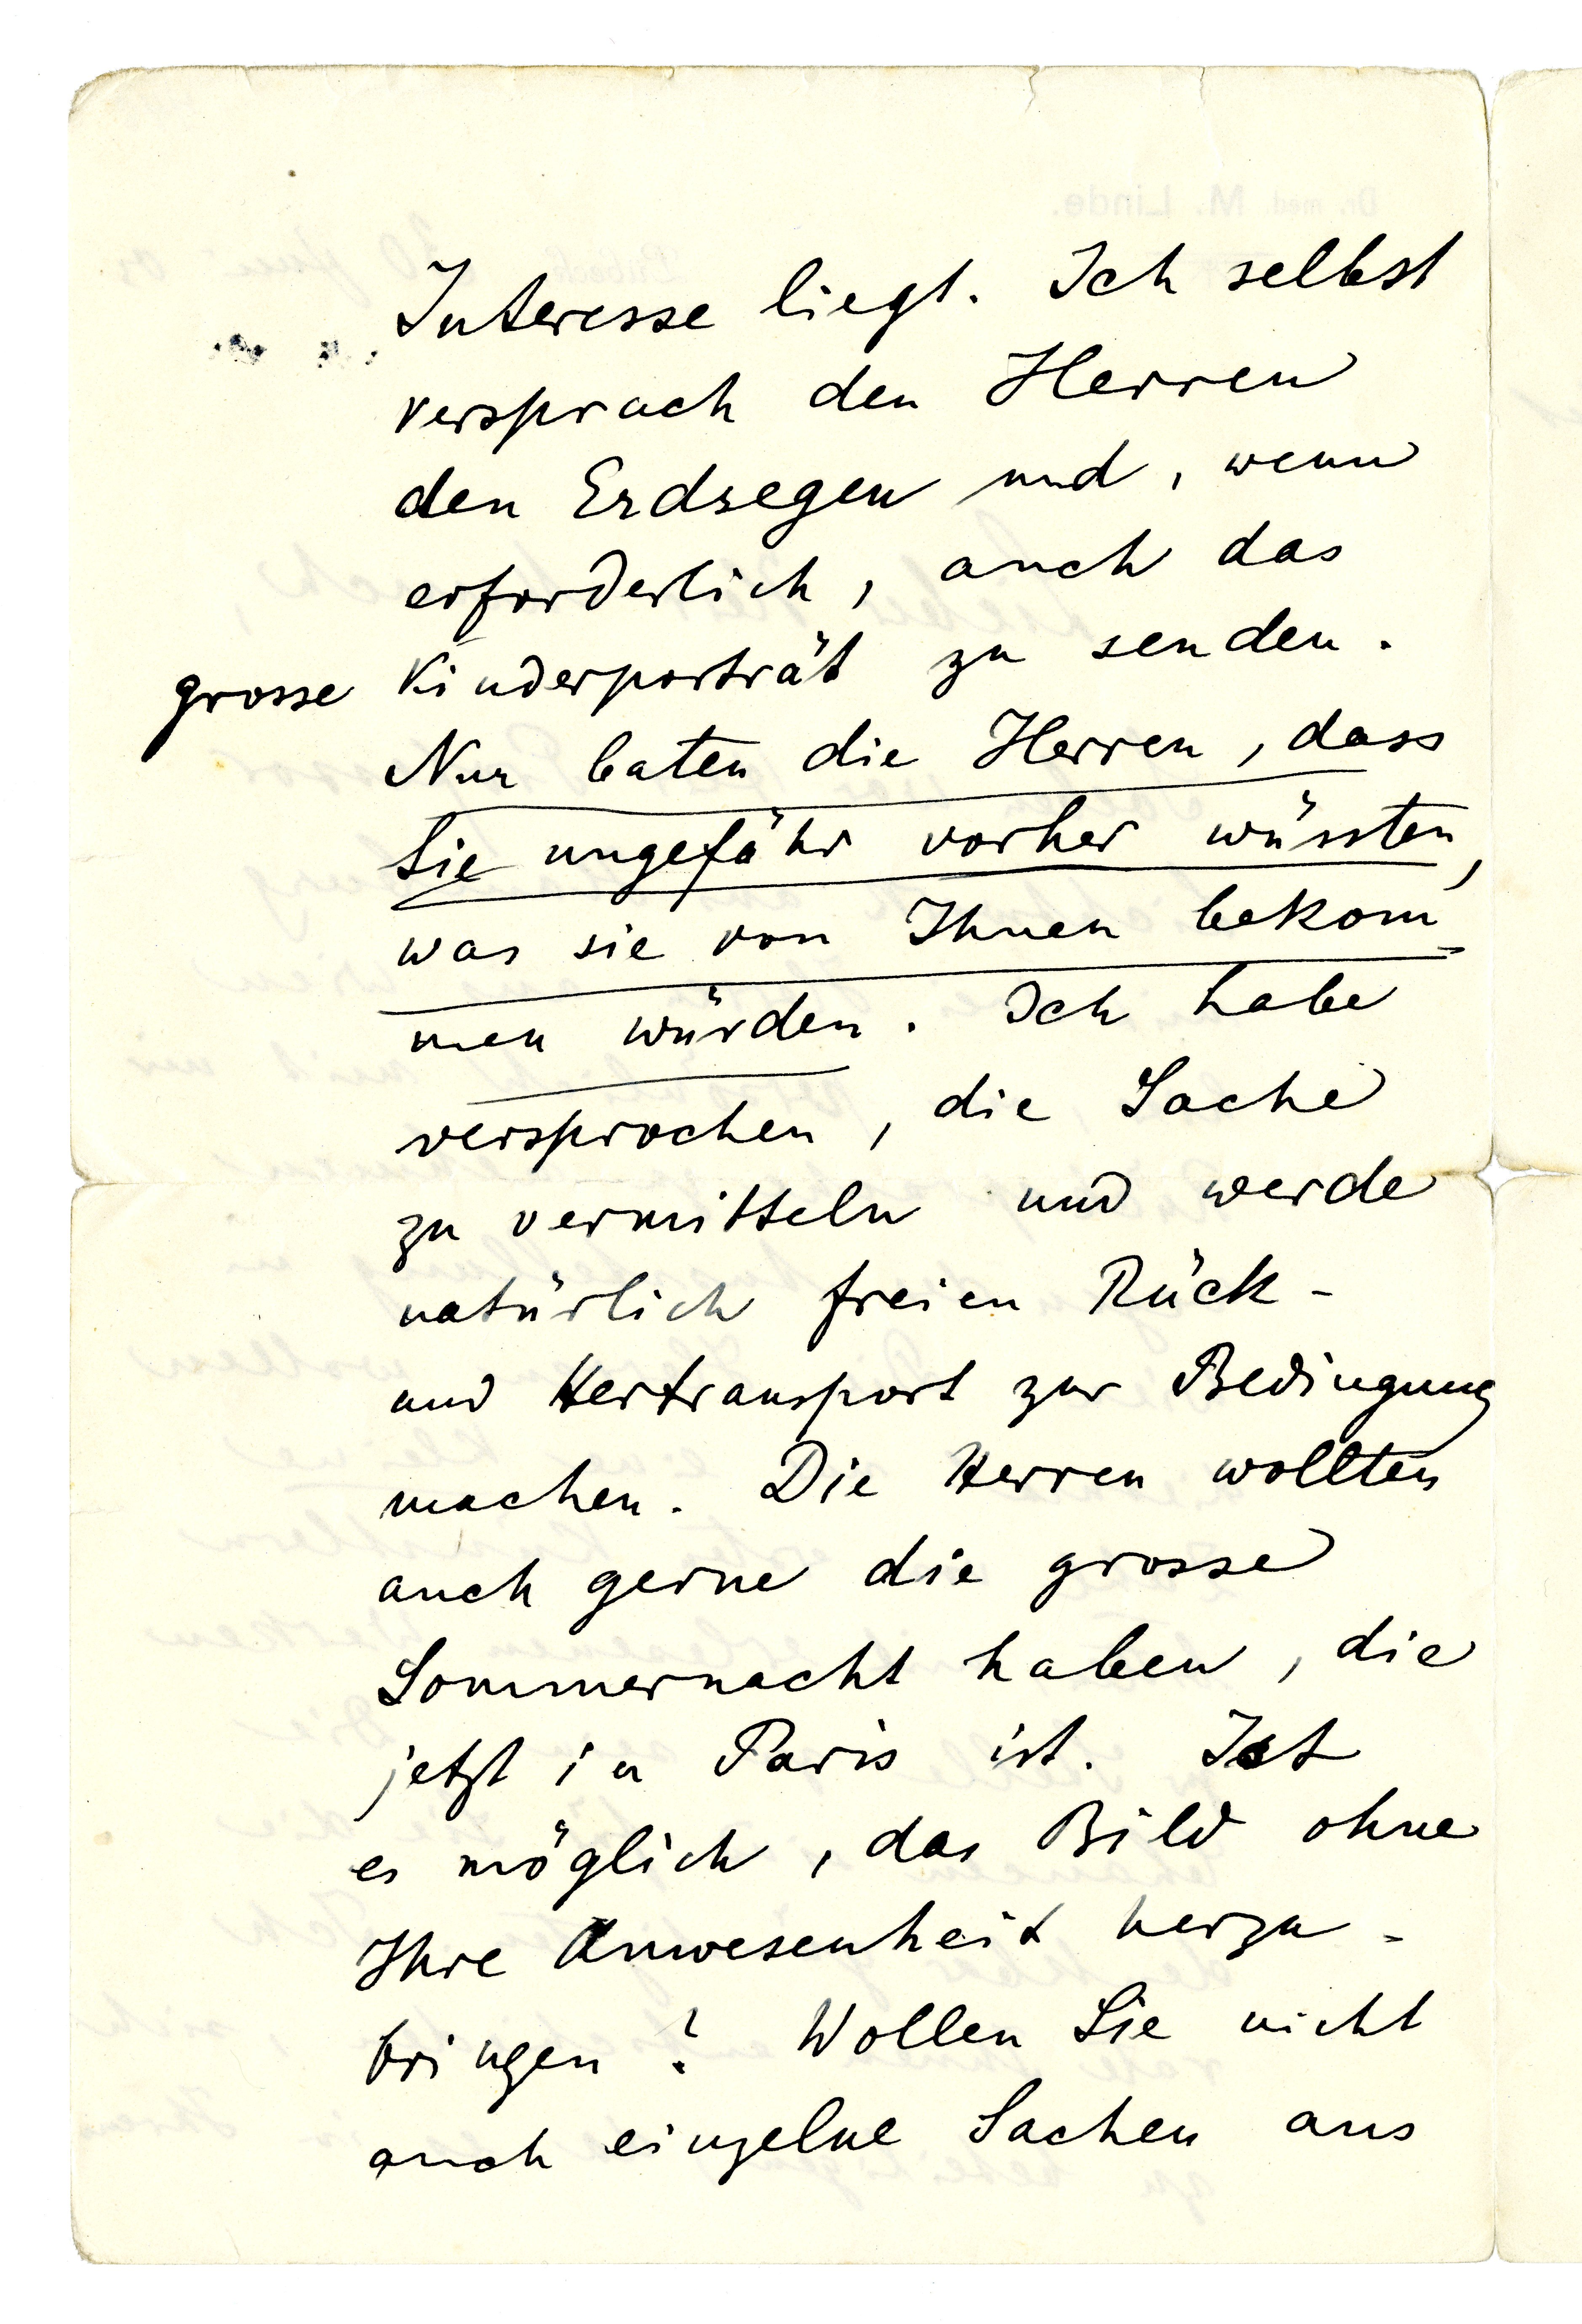 Interesse liegt. Ich selbst
versprach den Herren
den Erdsegen und, wenn
erforderlich, auch das
grosse Kinderporträt zu senden.
Nur baten die Herren, dass
Sie ungefähr vorher wüssten,
was sie von Ihnen bekom=
men würden. Ich habe
versprochen, die Sache
zu vermitteln und werde
natürlich freien Rück-
und Hertransport zur Bedingung
machen. Die Herren wollten
auch gerne die grosse
Sommernacht haben, die
jetzt in Paris ist. Ist
es möglich, das Bild ohne
Ihre Anwesenheit herzu-
bringen? Wollen Sie nicht
auch einzelne Sachen aus